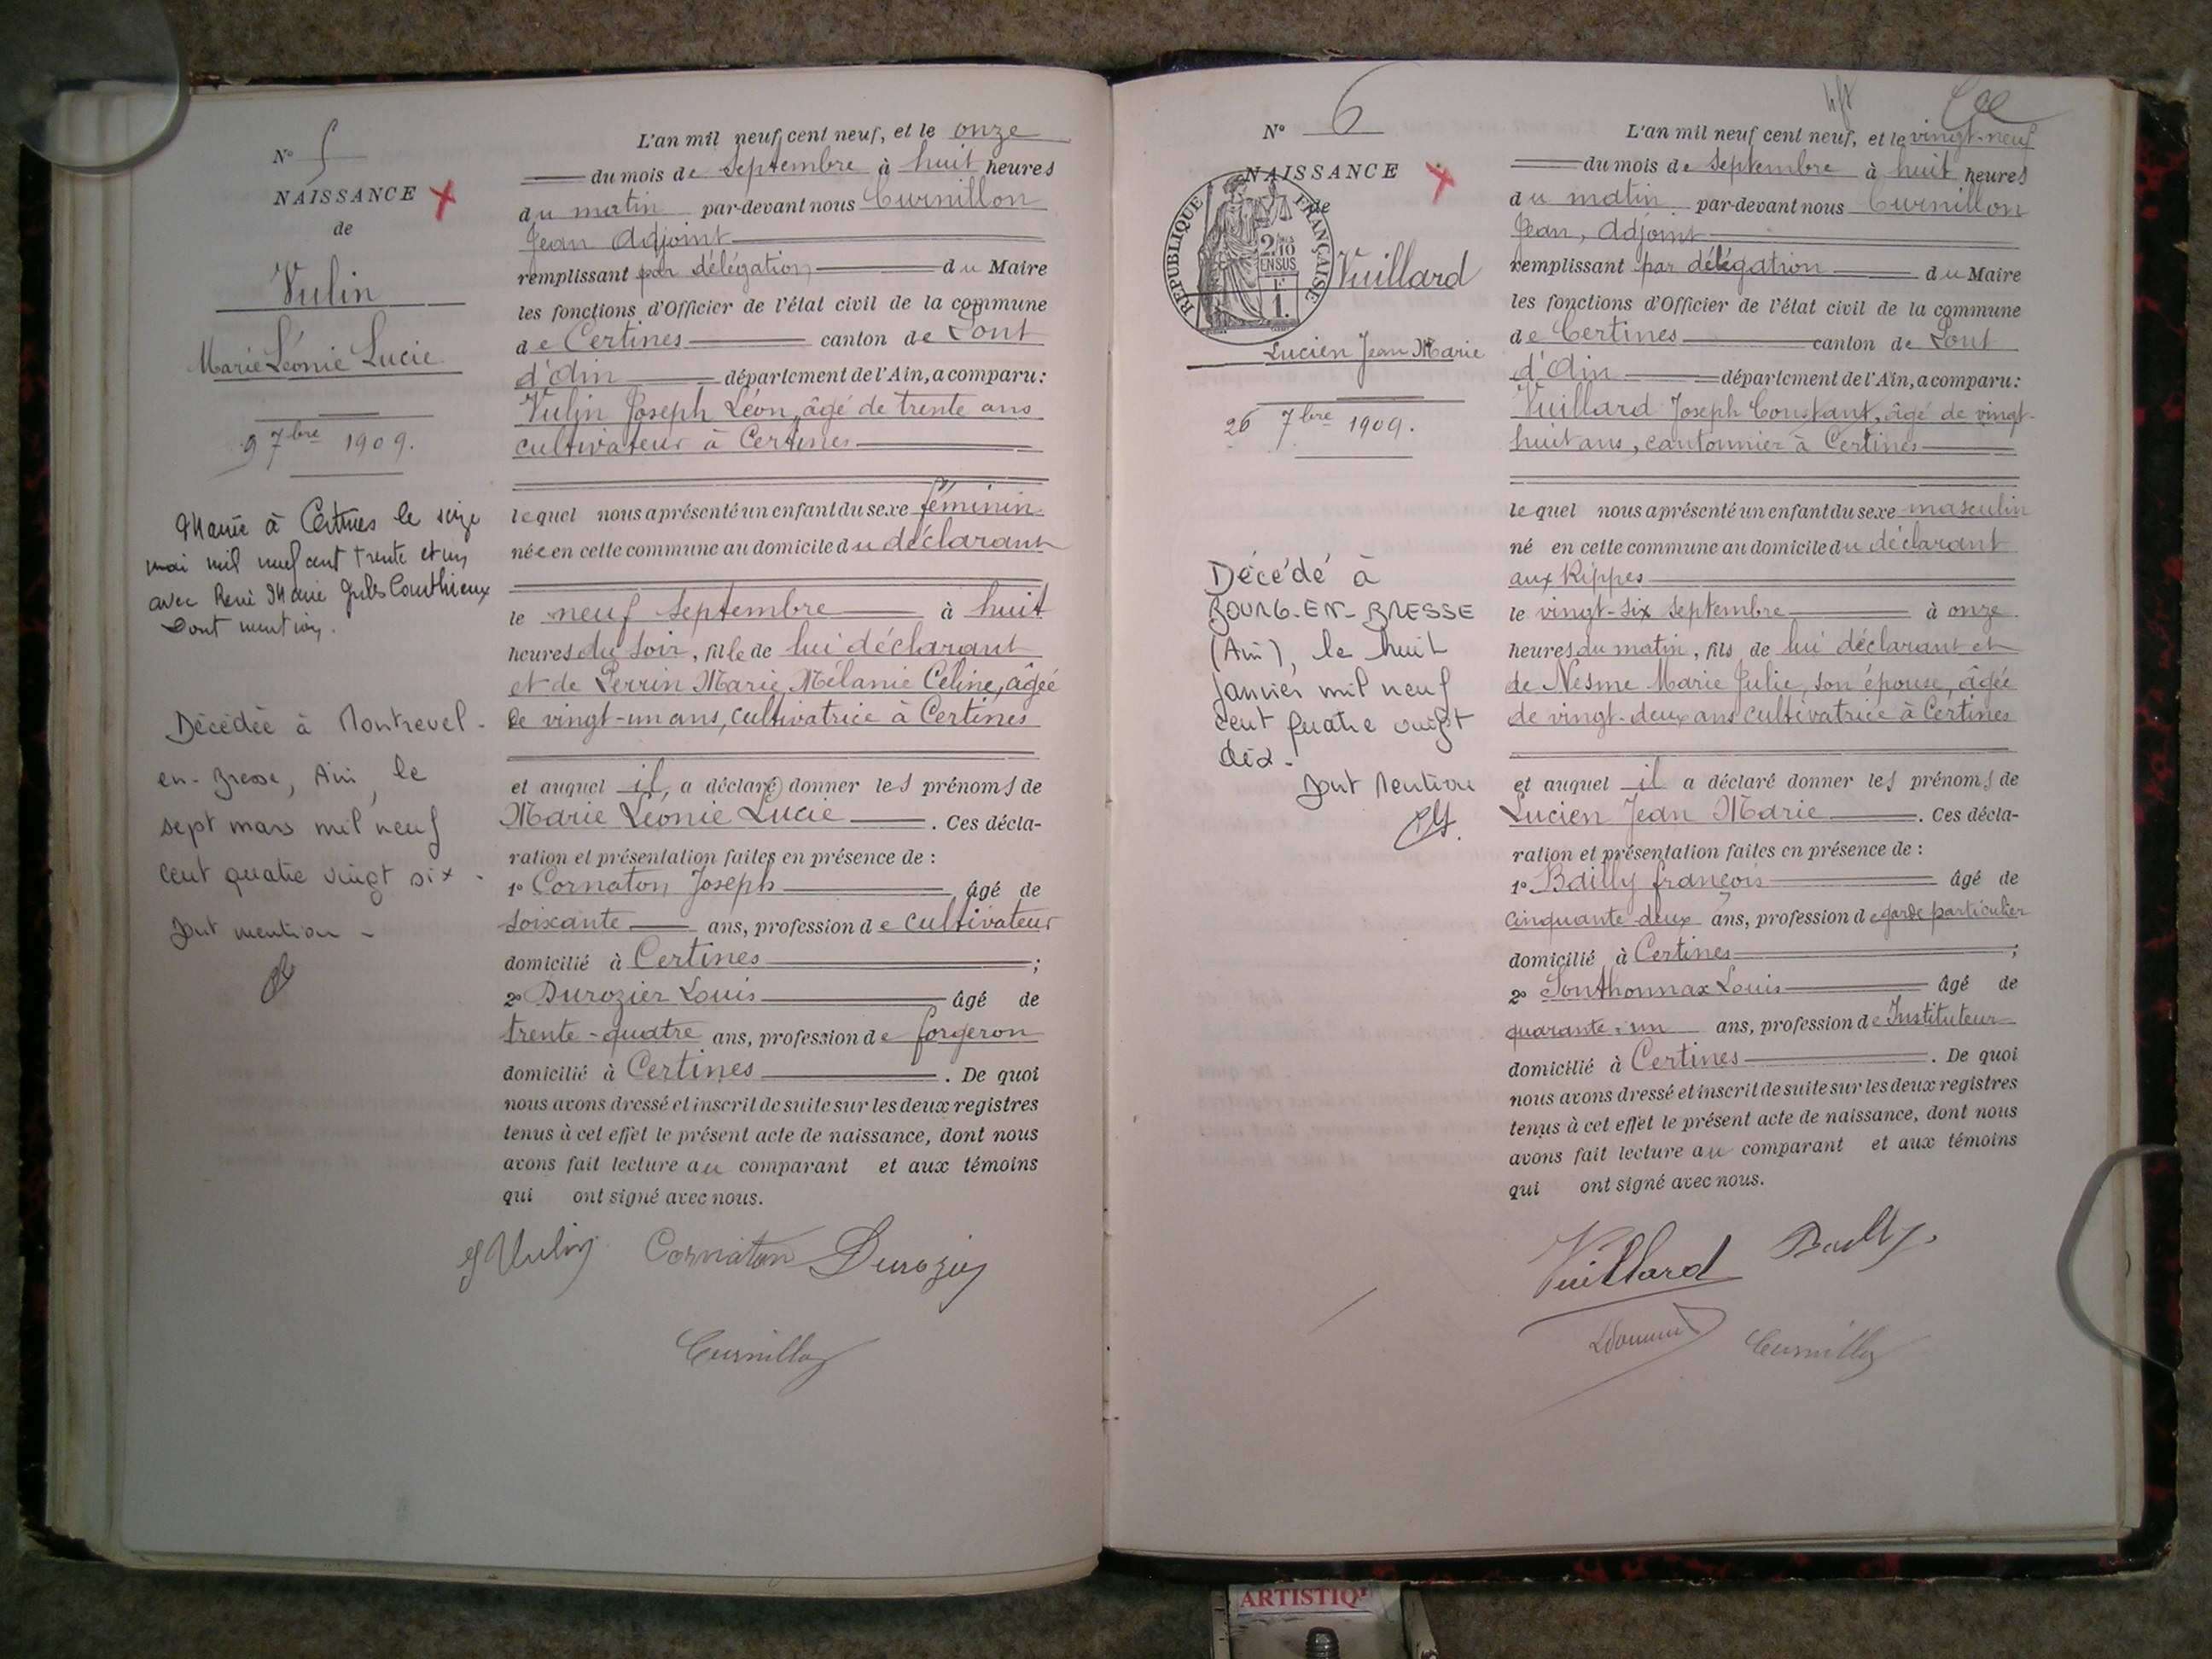 N° 5
NAISSANCE
de
Vulin
Marie Léonie Lucie
9 7bre 1909.
Mariée à Certines le seize
mai mil neuf cent trente et un
avec René Marie Jules Couthieux
Dont mention.
Décédée à Montrevel-
en-Bresse, Ain, le
sept mars mil neuf
cent quatre vingt six.
Dont mention -
L'an mil neuf cent neuf, et le onze
du mois de septembre à huit heures
du matin par-devant nous Curnillon
Jean Adjoint
remplissant par délégation du Maire
les fonctions d'Officier de l'état civil de la commune
de Certines canton de Pont
d'Ain département de l'Ain, a comparu:
Vulin Joseph Léon, âgé de trente ans
cultivateur à Certines
lequel nous a présenté un enfant du sexe féminin
née en cette commune au domicile du déclarant
le neuf septembre à huit
heures du soir, fille de lui déclarant
et de Perrin Marie Mélanie Céline, âgée
de vingt-un ans, cultivatrice à Certines
et auquel il a déclaré donner les prénoms de
Marie Léonie Lucie. Ces décla-
ration et présentation faites en présence de :
1° Cornaton Joseph âgé de
soixante ans, profession de cultivateur
domicilié à Certines ;
2° Durozier Louis âgé de
trente-quatre ans, profession de forgeron
domicilié à Certines. De quoi
nous avons dressé et inscrit de suite sur les deux registres
tenus à cet effet le présent acte de naissance, dont nous
avons fait lecture au comparant et aux témoins
qui ont signé avec nous.
J Vulin Cornaton Durozier
Curnillon
N° 6
NAISSANCE
de
RÉPUBLIQUE FRANÇAISE
2/10 EN SUS
1.
Vuillard
Lucien Jean Marie
26 7bre 1909.
Décédé à
BOURG-EN-BRESSE
(Ain), le huit
janvier mil neuf
cent quatre vingt
dix.
Dont Mention
L'an mil neuf cent neuf, et le vingt-neuf
du mois de septembre à huit heures
du matin par-devant nous Curnillon
Jean, Adjoint
remplissant par délégation du Maire
les fonctions d'Officier de l'état civil de la commune
de Certines canton de Pont
d'Ain département de l'Ain, a comparu:
Vuillard Joseph Constant, âgé de vingt-
huit ans, cantonnier à Certines
lequel nous a présenté un enfant du sexe masculin
né en cette commune au domicile du déclarant
aux Rippes
le vingt-six septembre à onze
heures du matin, fils de lui déclarant et
de Nesme Marie Julie, son épouse, âgée
de vingt-deux ans cultivatrice à Certines
et auquel il a déclaré donner les prénoms de
Lucien Jean Marie. Ces décla-
ration et présentation faites en présence de :
1° Bailly françois âgé de
cinquante-deux ans, profession de garde particulier
domicilié à Certines ;
2° Sonthonnax Louis âgé de
quarante-un ans, profession de Instituteur
domicilié à Certines. De quoi
nous avons dressé et inscrit de suite sur les deux registres
tenus à cet effet le présent acte de naissance, dont nous
avons fait lecture au comparant et aux témoins
qui ont signé avec nous.
Vuillard Bailly
Curnillon
ARTISTIQ